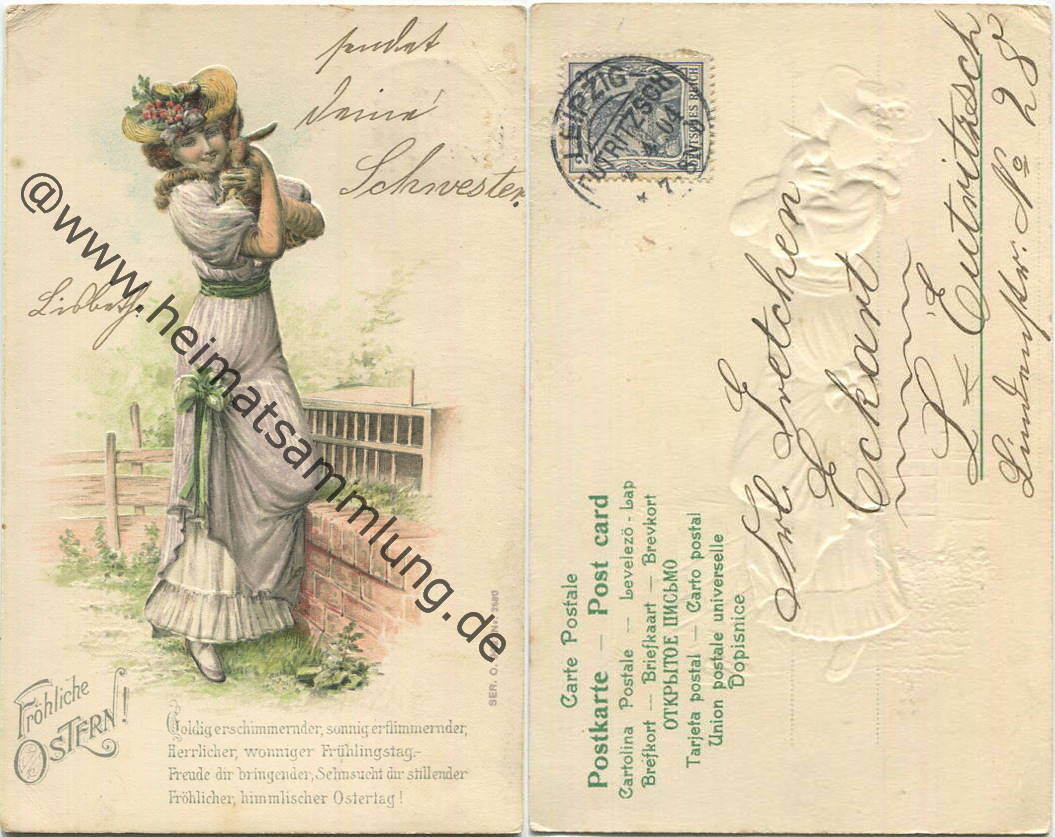 sendet
deine
Schwester.
Lisbeth.
@www.heimatsammlung.de
Fröhliche
OSTERN!
Goldig erschimmernder, sonnig erflimmernder,
Herrlicher, wonniger Frühlingstag.-
Freude dir bringender, Sehnsucht dir stillender
Fröhlicher, himmlischer Ostertag!
SER. O. No. 2680
LEIPZIG
EUTRITZSCH
04
7
DEUTSCHES REICH
2
2
Frl. Gretchen
Eckart
L.- Eutritzsch
Lindenstr. No 28
Carte Postale
Postkarte — Post card
Cartolina Postale — Levelező-Lap
Brefkort — Briefkaart — Brevkort
ОТКРЫТОЕ ПИСЬМО
Tarjeta postal — Carto postal
Union postale universelle
Dopisnice